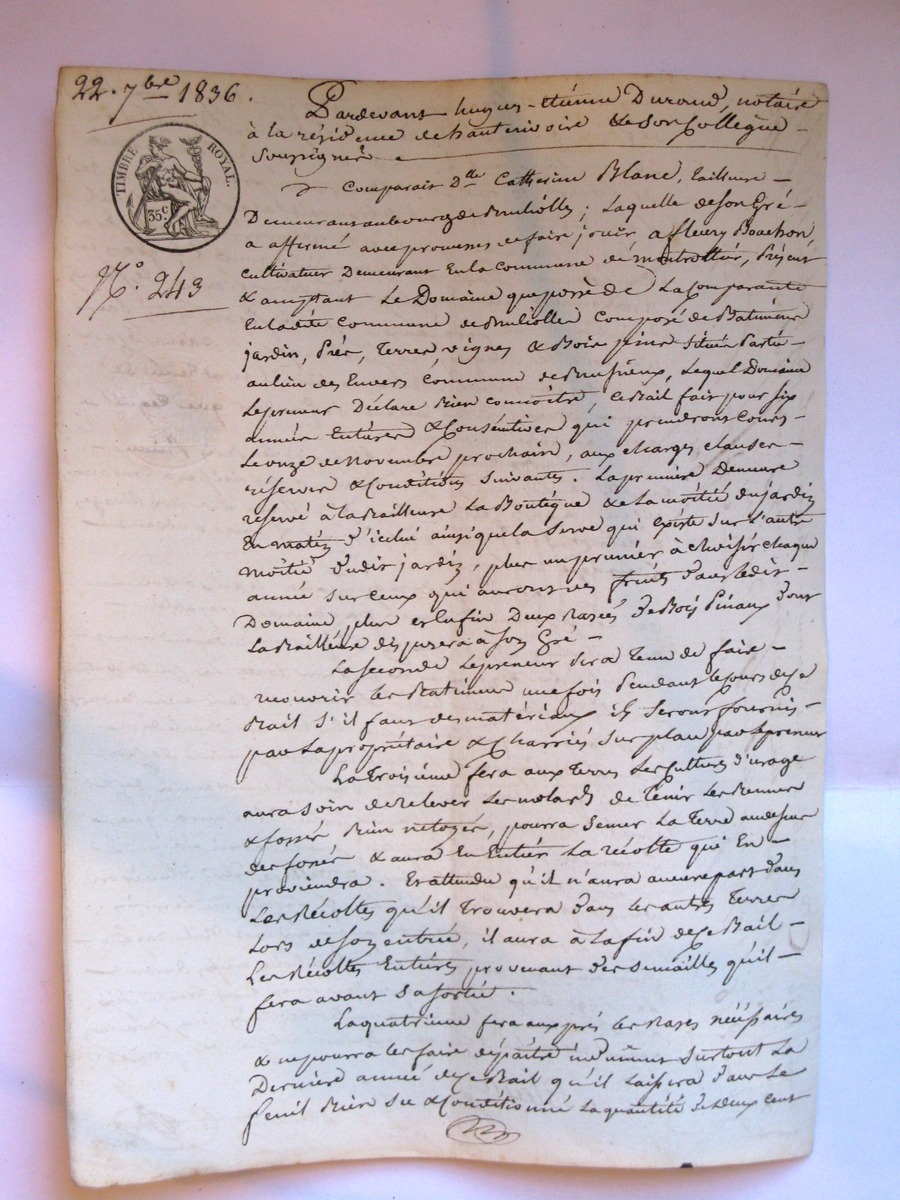 22. 7bre 1836.
Pardevant hugues-étienne Durand, notaire
à la résidence de hauterivoire & de son Collegue
Soussignés
TIMBRE ROYAL.
35c
Comparait Dlle Catherine Blanc, tailleuse
Demeurant au bourg de Brulliolles; laquelle de son Gré
a affirmé avec promesses de faire jouir a fleury Bouchon
cultivateur Demeurant En la commune de montrottier, Présent
N°. 243
& acceptant Le Domaine que possède La Comparante
En ladite Commune de Brulliolles Composé de Batiments
jardin, Prés, Terres, vignes & Bois pins située Partie
au lieu des Envers Commune de Brussieux, Lequel Domaine
Le preneur Déclare Bien connoitre, Ce Bail fait pour six
années Entières & Consécutives qui prendront Cours
Le onze de novembre prochain, aux charges, clauses
réserves & Conditions Suivantes. La première Demeure
réservé à la Bailleuse La Boutique & La moitié du jardin
En matin d'icelui ainsi que la Serve qui Existe sur L'autre
moitié dudit jardin, plus un prunier à choisir chaque
année sur Ceux qui auront des fruits dans ledit
Domaine, plus enfin Deux Rasées de Bois Pinaux dont
La Bailleuse disposera à Son Gré
La seconde Le preneur Sera Tenu de faire
recouvrir les Batiments une fois Pendant le Cours de ce
Bail S'il faut des matériaux ils Seront fournis
par la propriétaire & Charriés Sur place par le preneur
La Troisième fera aux Terres Les Cultures d'usage
aura soin de Relever Les de Tenir Les
& fossés Bien netoyés, pourra Semer La Terre au dessus
des fossés & aura En Entier La récolte qui En
proviendra. Et attendu qu'il n'aura aucune part dans
Les Récoltes qu'il Trouvera Dans les autres Terres
Lors de Son entrée, il aura à La fin de Ce Bail
Les Récoltes Entières provenant des Semailles qu'il
fera avant Sa Sortie.
La quatrième fera aux prés les Rases nécessaires
& ne pourra les faire dépaitre Surtout La
Dernière année de Ce Bail qu'il Laissera dans Le
fenil Bien Sec & Conditionné La quantité de Deux Cent